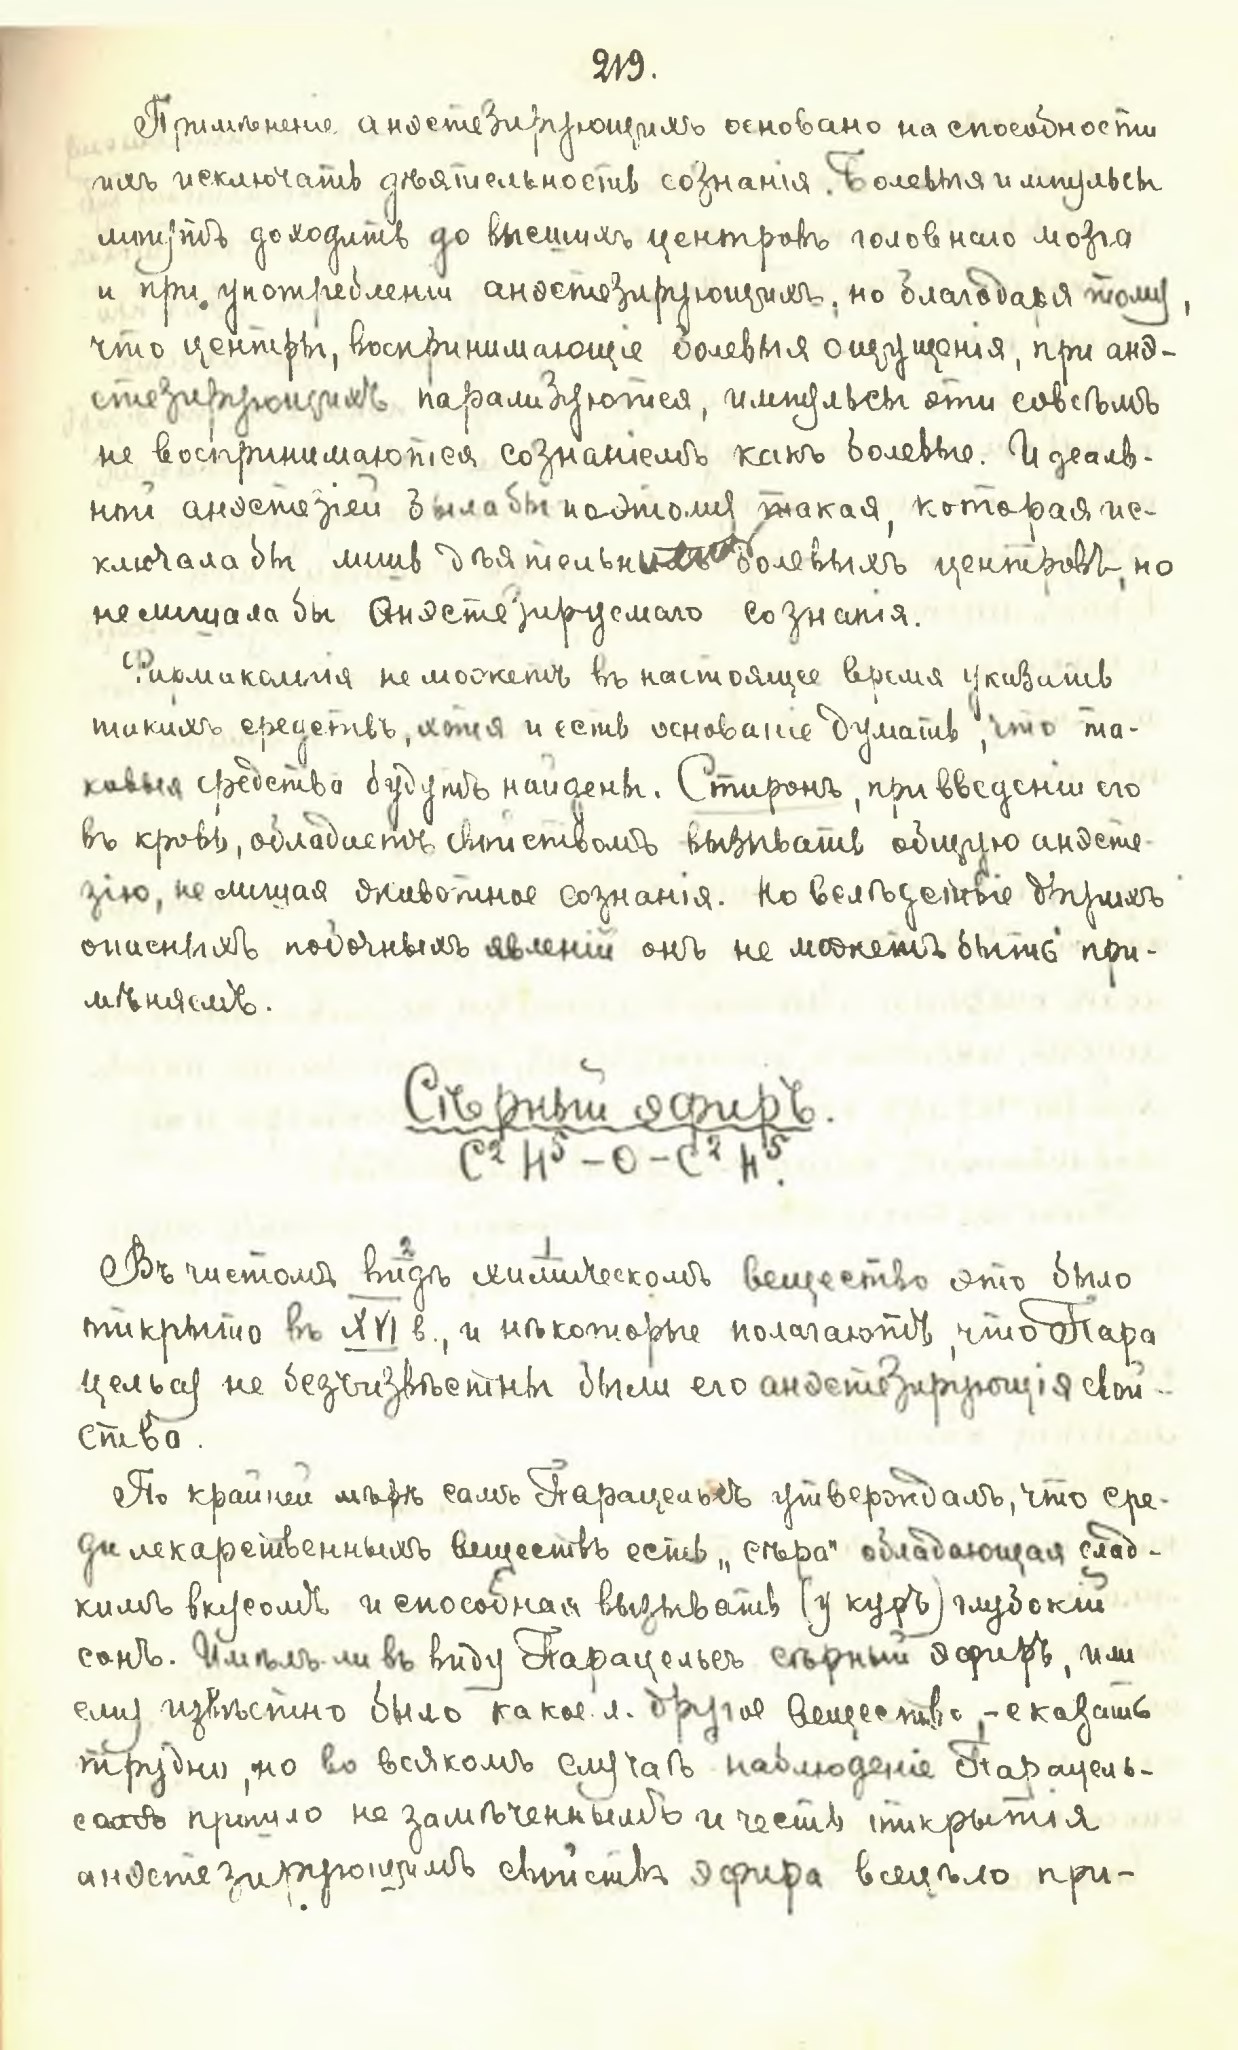 219.
Примѣненіе анэстезирующихъ основано на способности
ихъ исключать дѣятельность сознанія. Болевыя импульсы
могутъ доходить до высшихъ центровъ головнаго мозга
и при употребленіи анэстезирующихъ, но благодаря тому,
что центры, воспринимающіе болевыя ощущенія, при анэ-
стезирующихъ парализуются, импульсы эти совсѣмъ
не воспринимаются сознаніемъ какъ болевые. Идеаль-
ной анэстезіей была бы поэтому такая, которая ис-
ключала бы лишь дѣятельн болевыхъ центровъ, но
не лишала бы анэстезируемаго сознанія.
Фармакологія не можетъ въ настоящее время указать
такихъ средствъ, хотя и есть основаніе думать, что та-
ковыя средства будутъ найдены. Стиронъ, при введеніи его
въ кровь, обладаетъ свойствомъ вызывать общую анэсте-
зію, не лишая животное сознанія. Но вслѣдствіе другихъ
опасныхъ побочныхъ явленій онъ не можетъ быть при-
мѣняемъ.
Сѣрный эфиръ.
C² H⁵ – O – C² H⁵.
2 1
Въ чистомъ видѣ химическомъ вещество это было
открыто въ XVI в., и нѣкоторые полагаютъ, что Пара
цельсу не безъизвѣстны были его анэстезирующія свой-
ства.
По крайней мѣрѣ самъ Парацельсъ утверждалъ, что сре-
ди лекарственныхъ веществъ есть „сѣра" обладающая слад-
кимъ вкусомъ и способная вызывать (у куръ) глубокій
сонъ. Имѣлъ-ли въ виду Парацельсъ сѣрный эфиръ, или
ему извѣстно было какое л. другое вещество, – сказать
трудно, но во всякомъ случаѣ наблюденіе Парацель-
са прошло не замѣченнымъ и честь открытія
анэстезирующихъ свойствъ эфира всецѣло при-